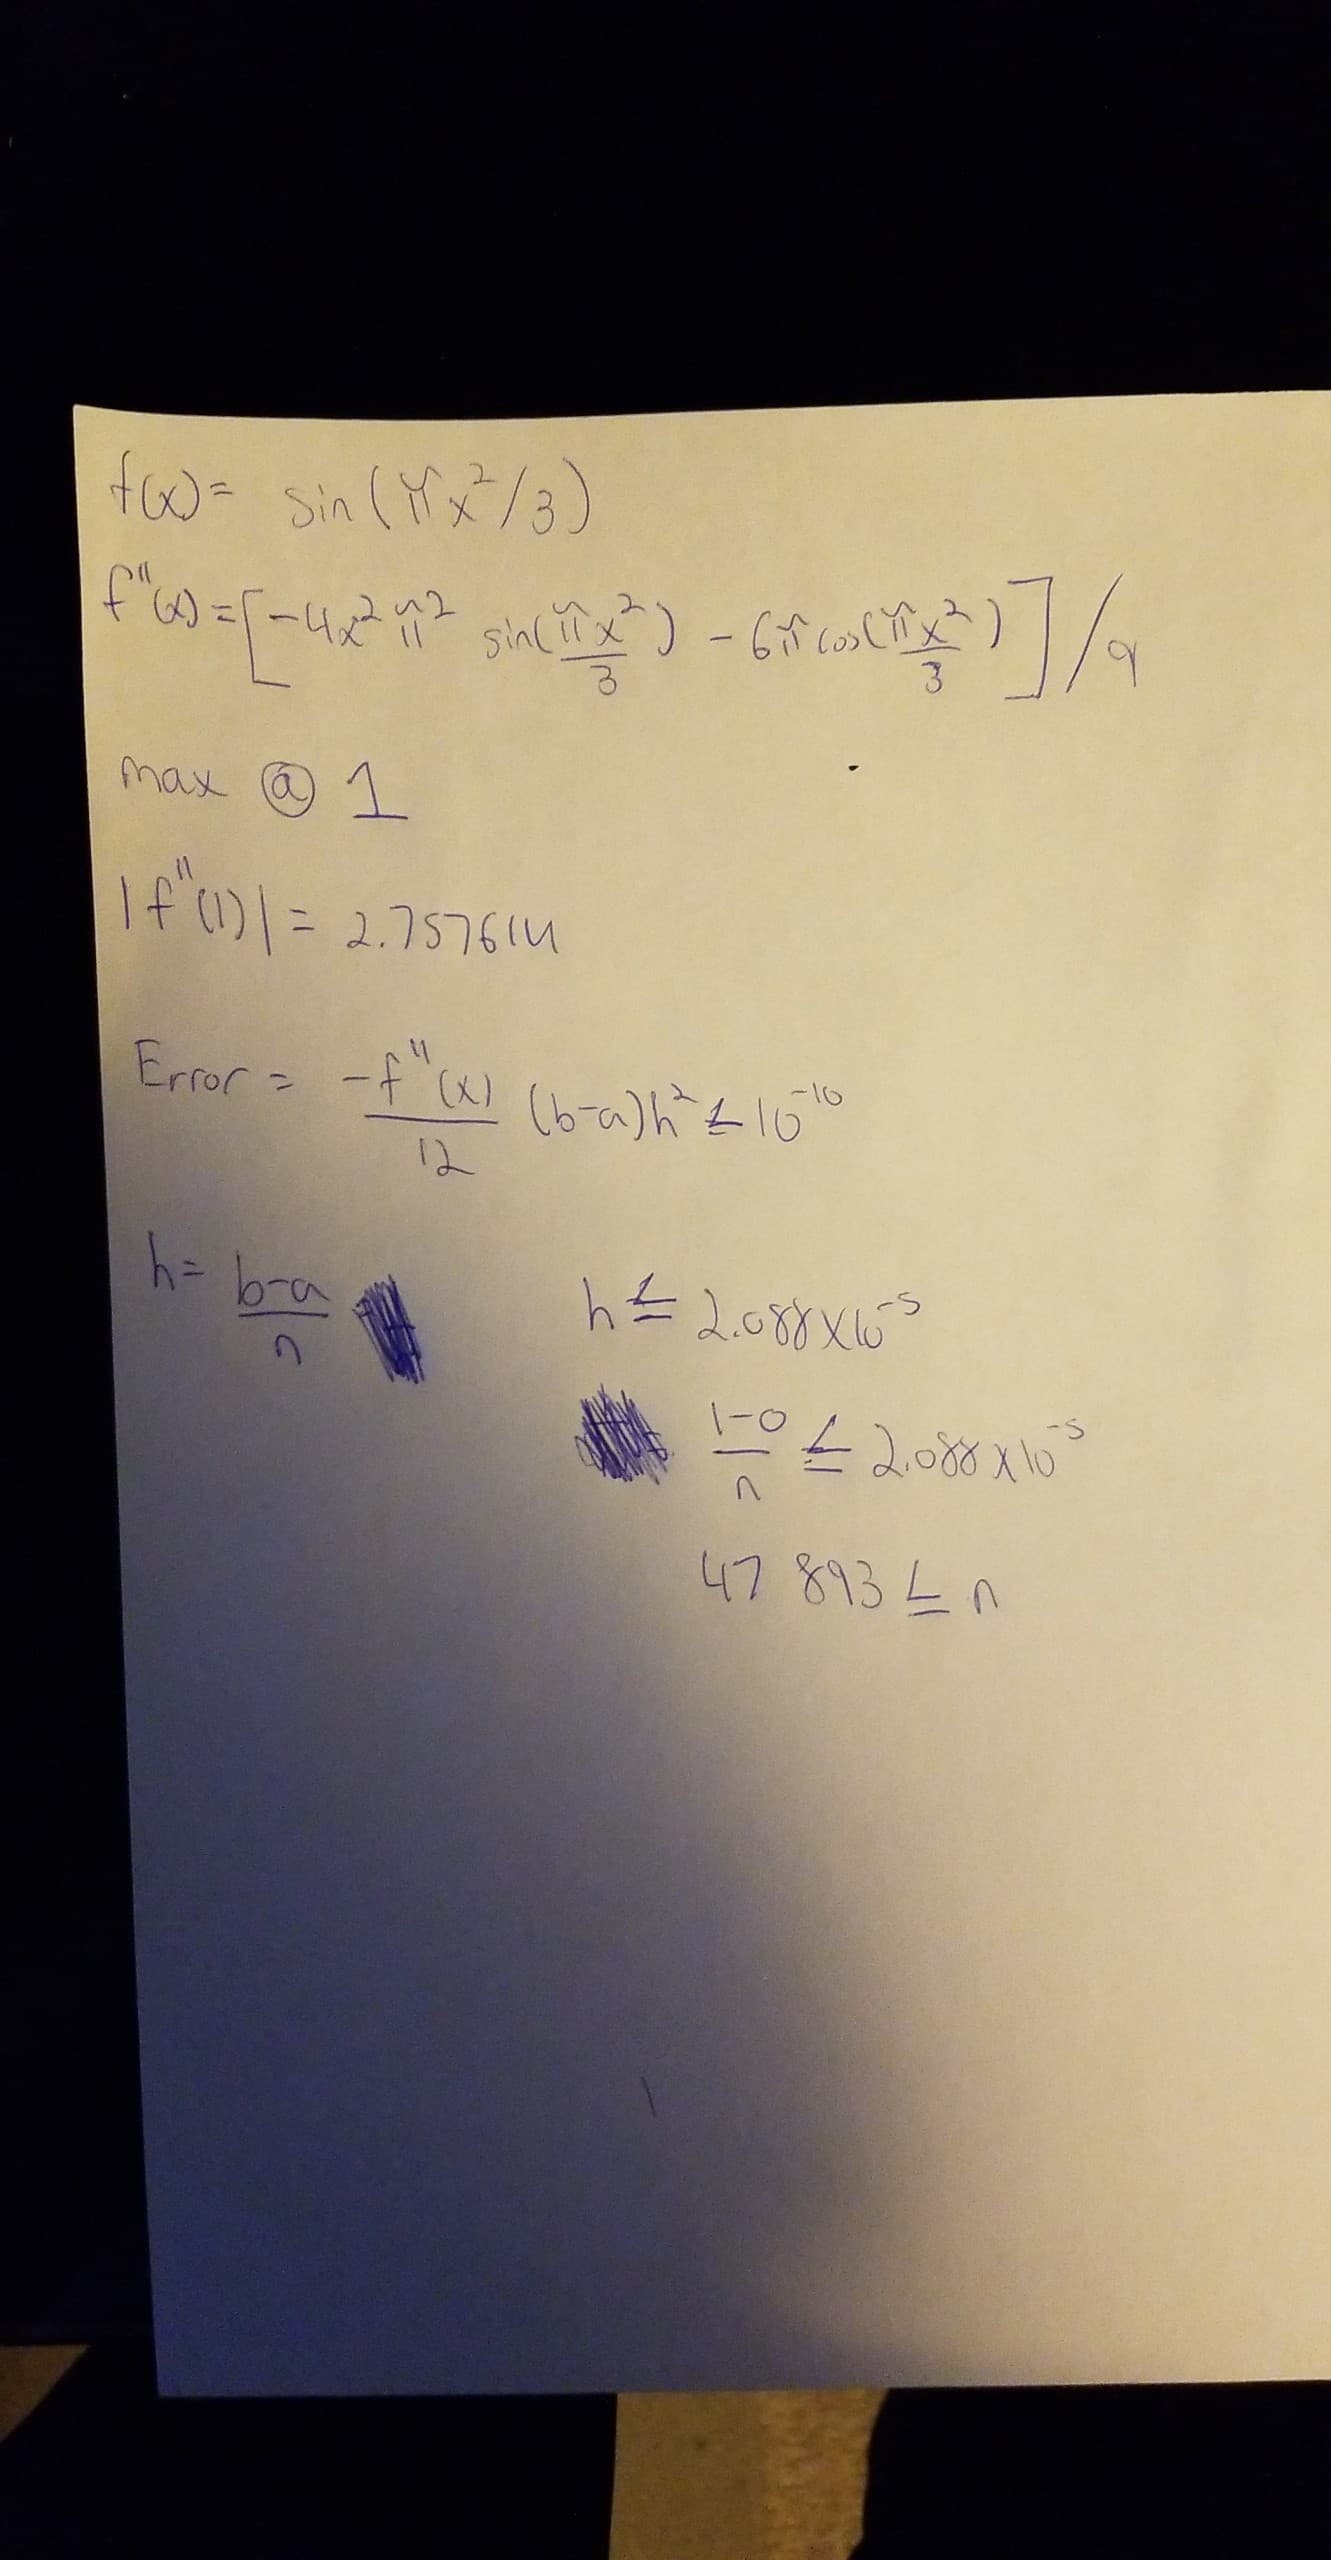 f(x) = sin(πx²/3)
f''(x) = [-4x²π² sin(πx²/3) - 6π cos(πx²/3)]/9
max @ 1
|f''(1)| = 2.757614
Error = -f''(x)/12 (b-a)h² ≤ 10⁻¹⁰
h = b-a/n
h ≤ 2.088x10⁻⁵
1-0/n ≤ 2.088x10⁻⁵
47 893 ≤ n